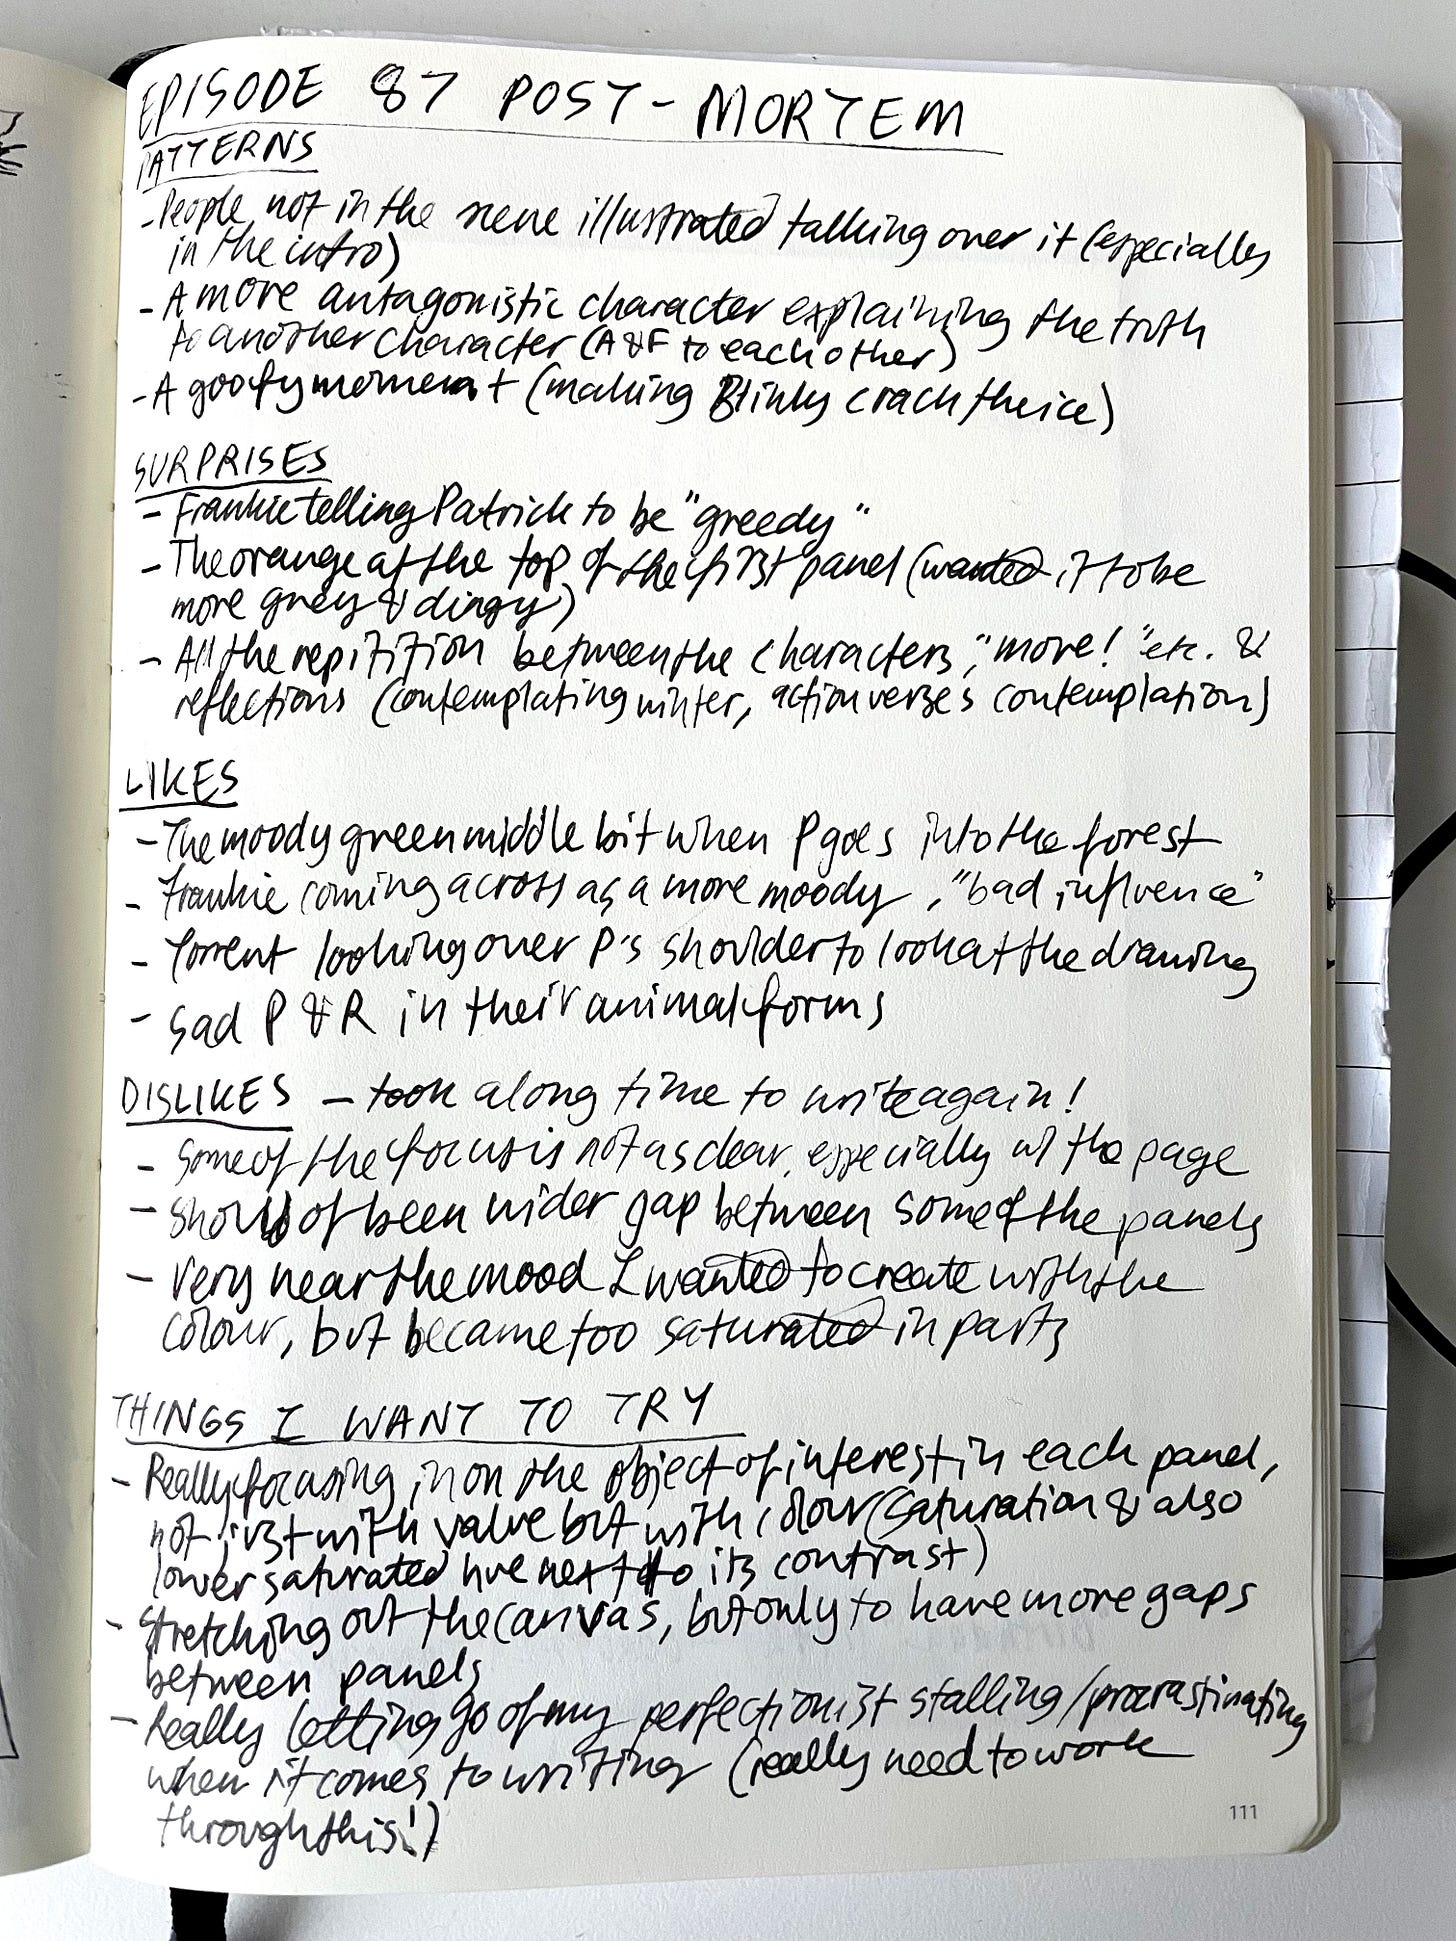 EPISODE 87 POST-MORTEM
PATTERNS
- People not in the scene illustrated talking over it (especially
in the intro)
- A more antagonistic character explaining the truth
to another character (A & F to each other)
- A goofy moment (making Blinky crack the ice)
SURPRISES
- Frankie telling Patrick to be "greedy"
- The orange at the top of the first panel (wanted it to be
more grey & dingy)
- All the repitition between the characters, "more!" etc. &
reflections (contemplating winter, action verses contemplation)
LIKES
- The moody green middle bit when P goes into the forest
- Frankie coming across as a more moody, "bad influence"
- Torrent looking over P's shoulder to look at the drawing
- Sad P & R in their animal forms
DISLIKES - took a long time to write again!
- Some of the focus is not as clear, especially w/ the page
- Should of been wider gap between some of the panels
- Very near the mood I wanted to create with the
colour, but became too saturated in parts
THINGS I WANT TO TRY
- Really focusing in on the object of interest in each panel,
not just with value but with colour (saturation & also
lower saturated hue next to its contrast)
- Stretching out the canvas, but only to have more gaps
between panels
- Really letting go of my perfectionist stalling/procrastinating
when it comes to writing (really need to work
through this!)
111